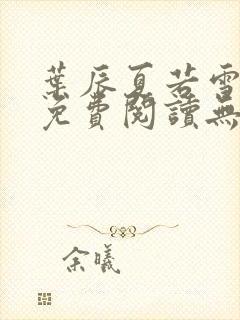 葉辰夏若雪
免費閱讀無
余曦